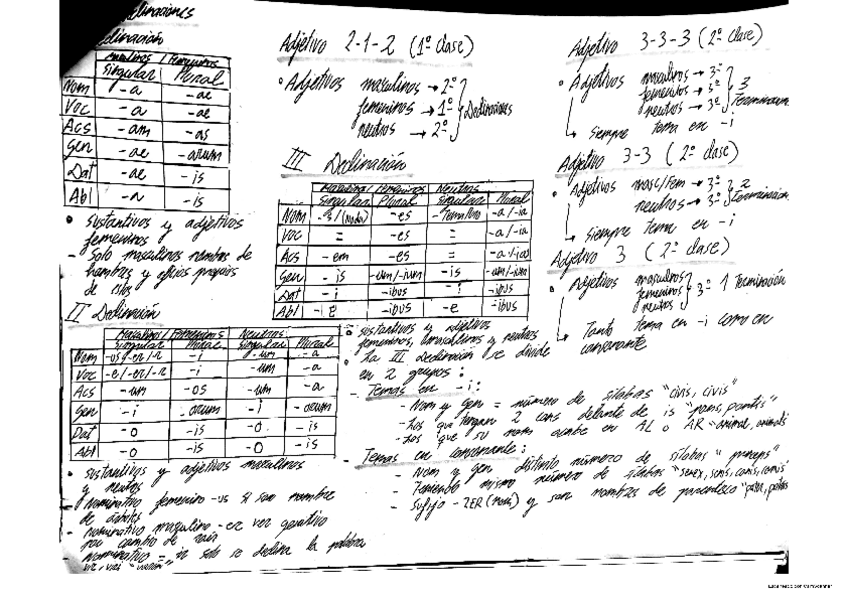 Declinaciones
Declinación
Masculinos / Femeninos
Singular Plural
Nom -a -ae
Voc -a -ae
Acs -am -as
Gen -ae -arum
Dat -ae -is
Abl -a -is
• sustantivos y adjetivos
femeninos
- Solo masculinos nombres de
hombres y oficios propios
de
II Declinación
Masculinos / Femeninos Neutros
Singular Plural Singular Plural
Nom -us/-er/-ir -i -um -a
Voc -e/-er/-ir -i -um -a
Acs -um -os -um -a
Gen -i -orum -i -orum
Dat -o -is -o -is
Abl -o -is -o -is
• sustantivos y adjetivos masculinos
y neutros
- nominativo femenino -us si son nombre
de árboles
- nominativo masculino -er ver genitivo
por cambio de raíz
nominativo = ir solo se declina la palabra
vir, viri
Adjetivo 2-1-2 (1º clase)
• Adjetivos masculinos → 2º
femeninos → 1º Declinaciones
neutros → 2º
III Declinación
Masculino / Femeninos Neutros
Singular Plural Singular Plural
Nom -s/ -es -a/-ia
Voc = -es = -a/-ia
Acs -em -es = -a/-ia
Gen -is -um/-ium -is -um/-ium
Dat -i -ibus -i -ibus
Abl -e -ibus -e -ibus
• sustantivos y adjetivos
femeninos, masculinos y neutros
• La III declinación se divide
en 2 grupos:
- Temas en -i:
- Nom y gen = número de sílabas "civis, civis"
- Los que tengan 2 cons delante de is
- Los que su nom acabe en AL o AR "animal, animalis"
- Temas en consonante:
- Nom y gen distinto número de sílabas
- Teniendo mismo número de sílabas "senex, senis, canis, canis"
- Sufijo -TER (nom) y son nombres de parentesco
Adjetivo 3-3-3 (2º clase)
• Adjetivos masculinos → 3º
femeninos → 3º 3
neutros → 3º Terminaciones
↳ Siempre tema en -i
Adjetivo 3-3 (2º clase)
• Adjetivos masc/fem → 3º 2
neutros → 3º Terminaciones
↳ Siempre tema en -i
Adjetivo 3 (2º clase)
• Adjetivos masculinos
femeninos 3º 1 Terminación
neutros
↳ Tanto tema en -i como en
consonante